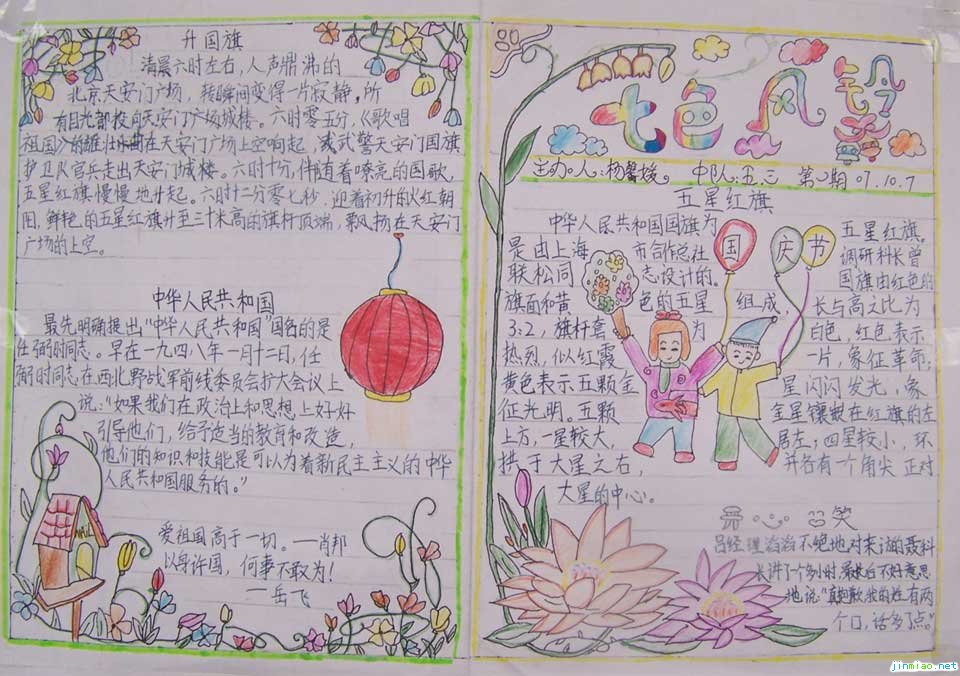 升国旗
清晨六时左右，人声鼎沸的
北京天安门广场，转瞬间变得一片寂静，所
有目光都投向天安门广场城楼。六时零五分，《歌唱
祖国》的雄壮曲在天安门广场上空响起，武警天安门国旗
护卫队官兵走出天安门城楼。六时十分，伴随着嘹亮的国歌，
五星红旗慢慢地升起。六时十二分零七秒，迎着初升的火红朝
阳，鲜艳的五星红旗升至三十米高的旗杆顶端，飘扬在天安门
广场的上空。
中华人民共和国
最先明确提出"中华人民共和国"国名的是
任弼时同志。早在一九四八年一月十二日，任
弼时同志在西北野战军前线委员会扩大会议上
说："如果我们在政治上和思想上好好
引导他们，给予适当的教育和改造，
他们的知识和技能是可以为着新民主主义的中华
人民共和国服务的。"
爱祖国高于一切。—肖邦
以身许国，何事不敢为！
—岳飞
七色风铃
主办人：杨馨媛 中队：五.三 第2期 07.10.7
五星红旗
中华人民共和国国旗为 五星红旗。
是由上海 市合作总社 调研科长曾
联松同 志设计的。 国旗由红色的
旗面和黄 色的五星 组成，长与高之比为
3:2，旗杆套 为 白色，红色表示
热烈，似红霞 一片，象征革命；
黄色表示五颗金 星闪闪发光，象
征光明。五颗 金星镶嵌在红旗的左
上方，一星较大， 居左；四星较小，环
拱于大星之右， 并各有一个角尖 正对
大星的中心。
国 庆 节
笑
吕经理滔滔不绝地对来访的聂科
长讲了个多小时，最后不好意思
地说："真抱歉，我的姓有两
个口，话多了点。"
jinmiao.net